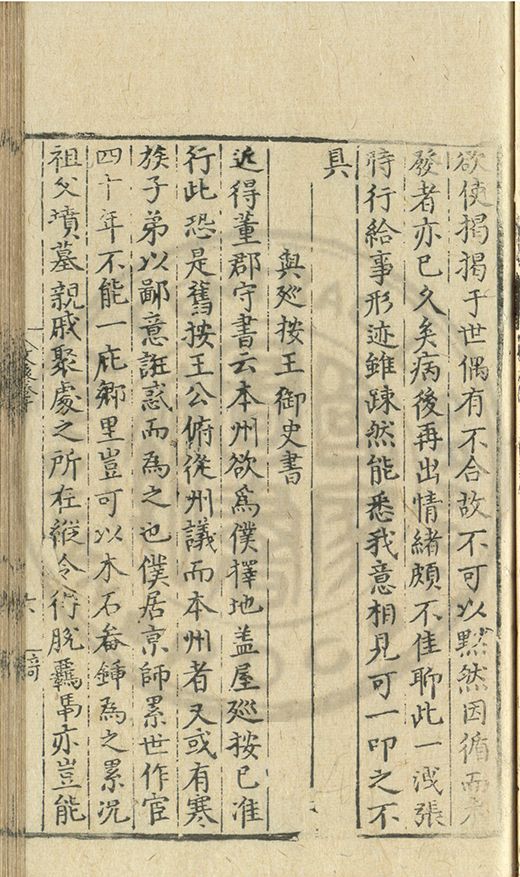 欲使揭揭于世偶有不合故不可以黙然因循而未
發者亦已久矣病後再出情緒頗不佳聊此一洩張
時行給事形迹雖踈然能悉我意相見可一叩之不
具
與廵按王御史書
近得董郡守書云本州欲爲僕擇地盖屋廵按已准
行此恐是舊按王公俯從州議而本州者又或有寒
族子弟以鄙意誑惑而為之也僕居京師累世作官
四十年不能一庇鄉里豈可以木石畚鍤爲之累况
祖父墳墓親戚聚處之所在縱令得脫羈馽亦豈能
六